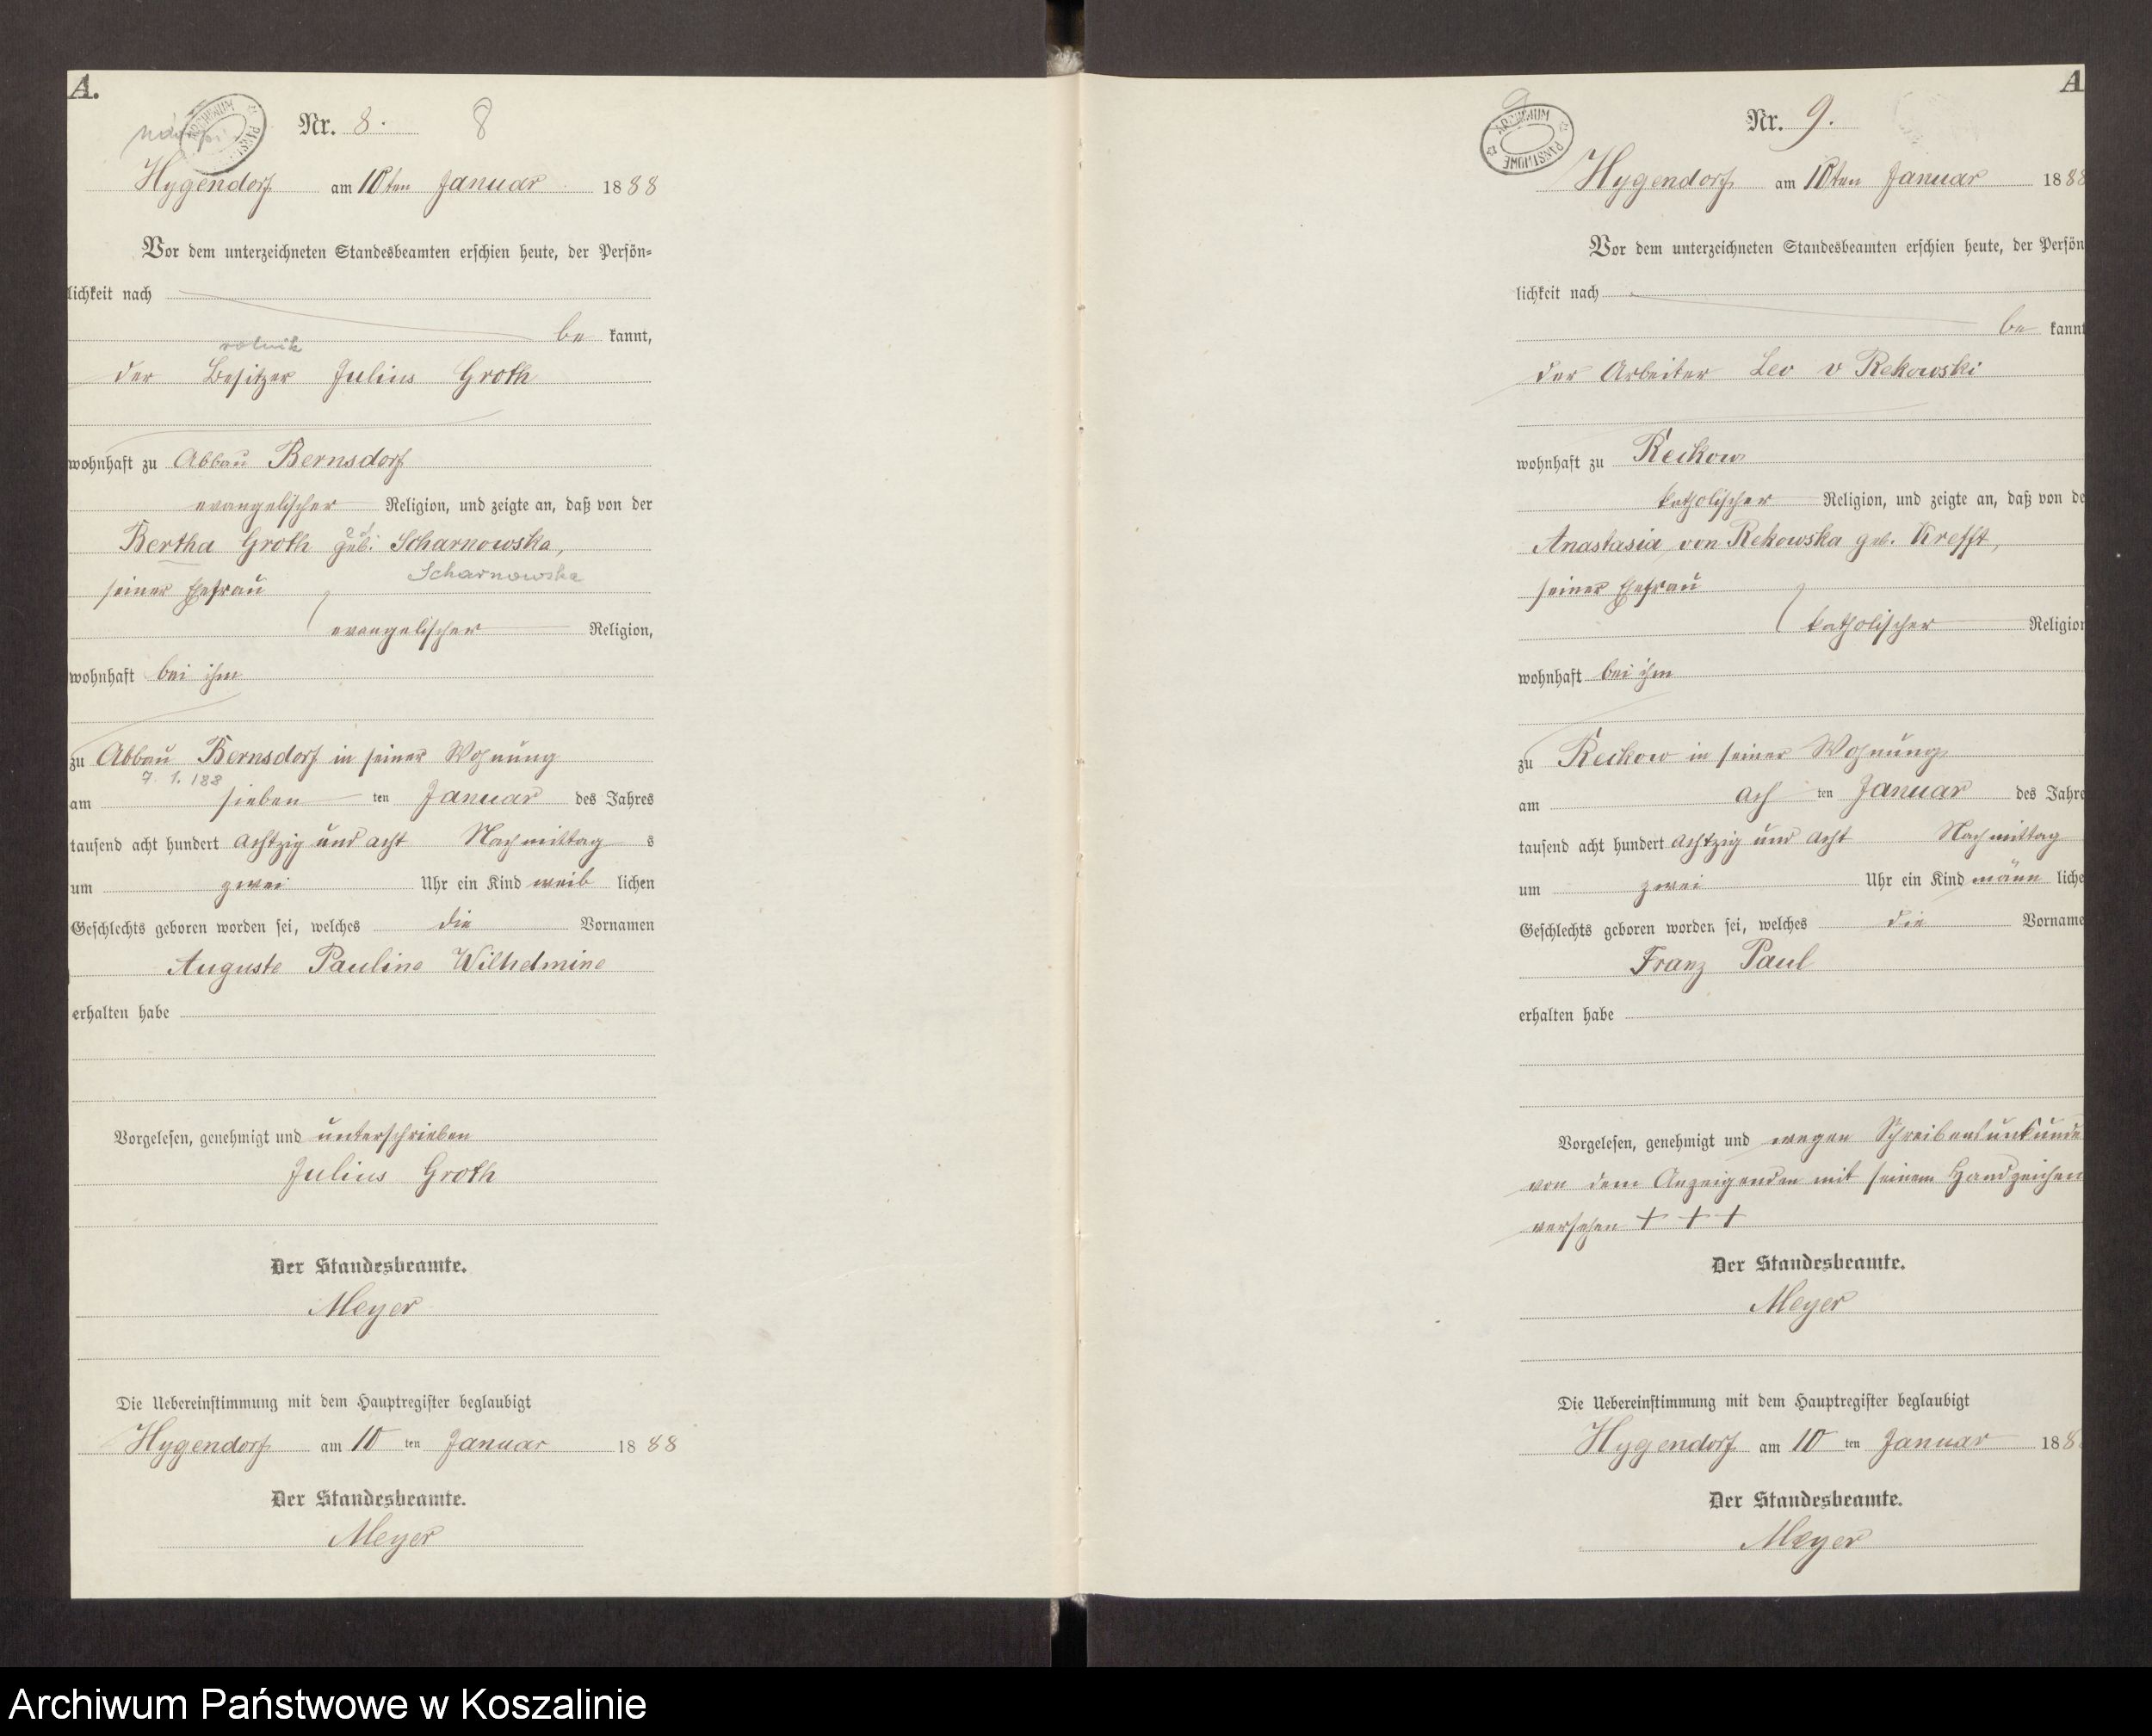 A.
Nr. 8. 8
ARCHIWUM PAŃST
Hygendorf am 10ten Januar 1888
Vor dem unterzeichneten Standesbeamten erschien heute, der Persön-
lichkeit nach
be kannt,
rolnik
der Besitzer Julius Groth
wohnhaft zu Abbau Bernsdorf
evangelischer Religion, und zeigte an, daß von der
Bertha Groth geb. Scharnowska,
Scharnowska
seiner Ehefrau
evangelischer Religion,
wohnhaft bei ihm
zu Abbau Bernsdorf in seiner Wohnung
7. 1. 188
am sieben ten Januar des Jahres
tausend acht hundert achtzig und acht Nachmittag s
um zwei Uhr ein Kind weib lichen
Geschlechts geboren worden sei, welches die Vornamen
Auguste Pauline Wilhelmine
erhalten habe
Vorgelesen, genehmigt und unterschrieben
Julius Groth
Der Standesbeamte.
Meyer
Die Uebereinstimmung mit dem Hauptregister beglaubigt
Hygendorf am 10 ten Januar 1888
Der Standesbeamte.
Meyer
A
9
Nr. 9.
ARCHIWUM PAŃSTWOWE
Hygendorf am 10ten Januar 1888
Vor dem unterzeichneten Standesbeamten erschien heute, der Persön
lichkeit nach
be kannt
der Arbeiter Leo v Rekowski
wohnhaft zu Reckow
katholischer Religion, und zeigte an, daß von de
Anastasia von Rekowska geb. Krefft,
seiner Ehefrau
katholischer Religion
wohnhaft bei ihm
zu Reckow in seiner Wohnung
am ach ten Januar des Jahre
tausend acht hundert achtzig und acht Nachmittag
um zwei Uhr ein Kind männ liche
Geschlechts geboren worden sei, welches die Vorname
Franz Paul
erhalten habe
Vorgelesen, genehmigt und wegen Schreibensunkunde
von dem Anzeigenden mit seinem Handzeichen
versehen + + +
Der Standesbeamte.
Meyer
Die Uebereinstimmung mit dem Hauptregister beglaubigt
Hygendorf am 10 ten Januar 188
Der Standesbeamte.
Meyer
Archiwum Państwowe w Koszalinie